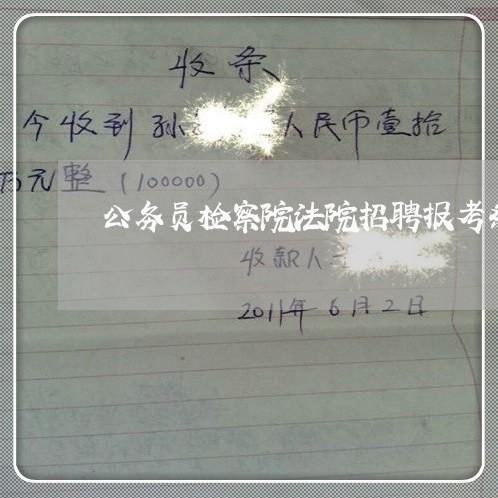 收条
今收到孙 人民币壹拾
万元整（100000）
公务员检察院法院招聘报考
收款人
2011年6月2日